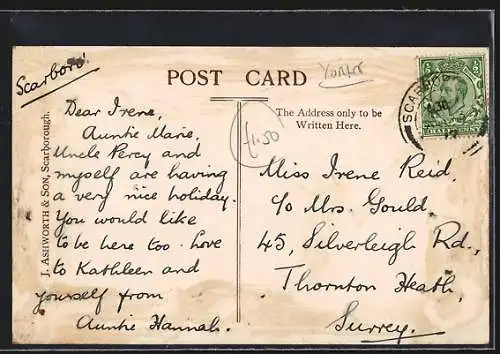 Scarboro'
POST CARD
Yorks
J. ASHWORTH & SON, Scarborough.
Dear Irene,
Auntie Marie,
Uncle Percy and
myself are having
a very nice holiday.
You would like
to be here too. Love
to Kathleen and
yourself from
Auntie Hannah.
1.50
The Address only to be
Written Here.
SCARBORO
HALFPENNY
Miss Irene Reid,
c/o Mrs. Gould,
45, Silverleigh Rd.,
Thornton Heath,
Surrey.